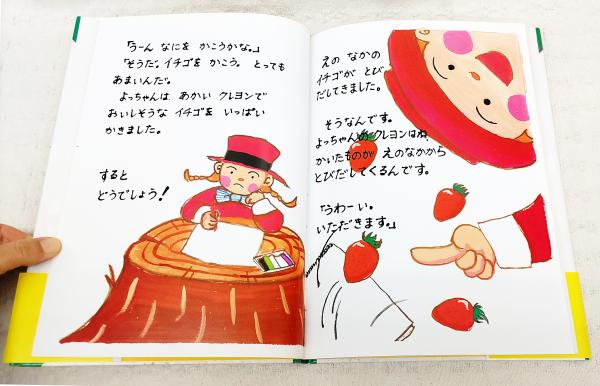 「うーん なにを かこうかな。」
「そうだ。イチゴを かこう。とっても
あまいんだ。
よっちゃんは、あかい クレヨンで
おいしそうな イチゴを いっぱい
かきました。
すると
どうでしょう!
えの なかの
イチゴが とび
だしてきました。
そうなんです。
よっちゃんの クレヨンはね、
かいたものが えのなかから
とびだしてくるんです。
「うわーい。
いただきます。」